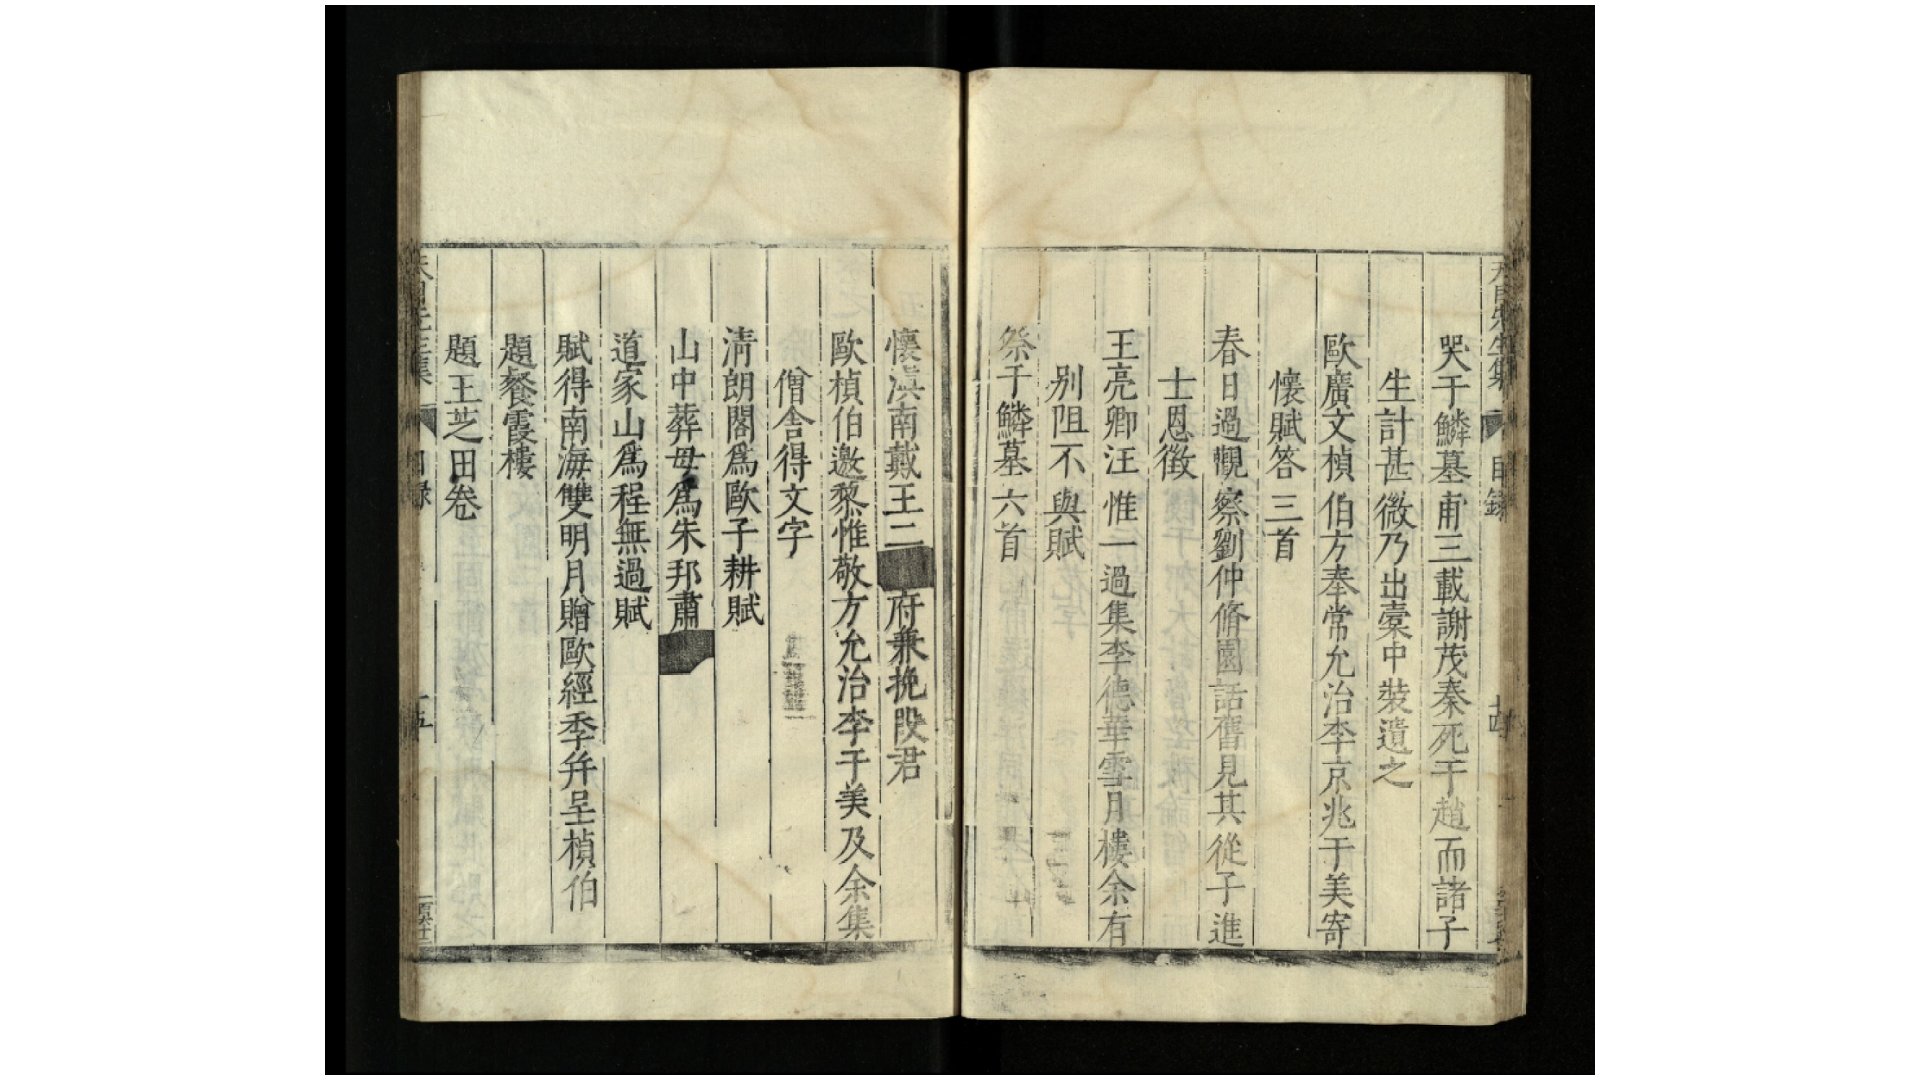 天目先生集 目錄 十四
哭于鱗墓甫三載謝茂秦死于趙而諸子
生計甚微乃出橐中裝遺之
歐廣文楨伯方奉常允治李京兆于美寄
懷賦答三首
春日過觀察劉仲脩園話舊見其從子進
士恩徵
王亮卿汪惟一過集李德華雪月樓余有
别阻不與賦
祭于鱗墓六首
懷滇南戴王二府兼挽段君
歐楨伯邀黎惟敬方允治李于美及余集
僧舍得文字
清朗閣爲歐子耕賦
山中葬母爲朱邦肅
道家山爲程無過賦
賦得南海雙明月贈歐經季并呈楨伯
題餐霞樓
題王芝田卷
目錄